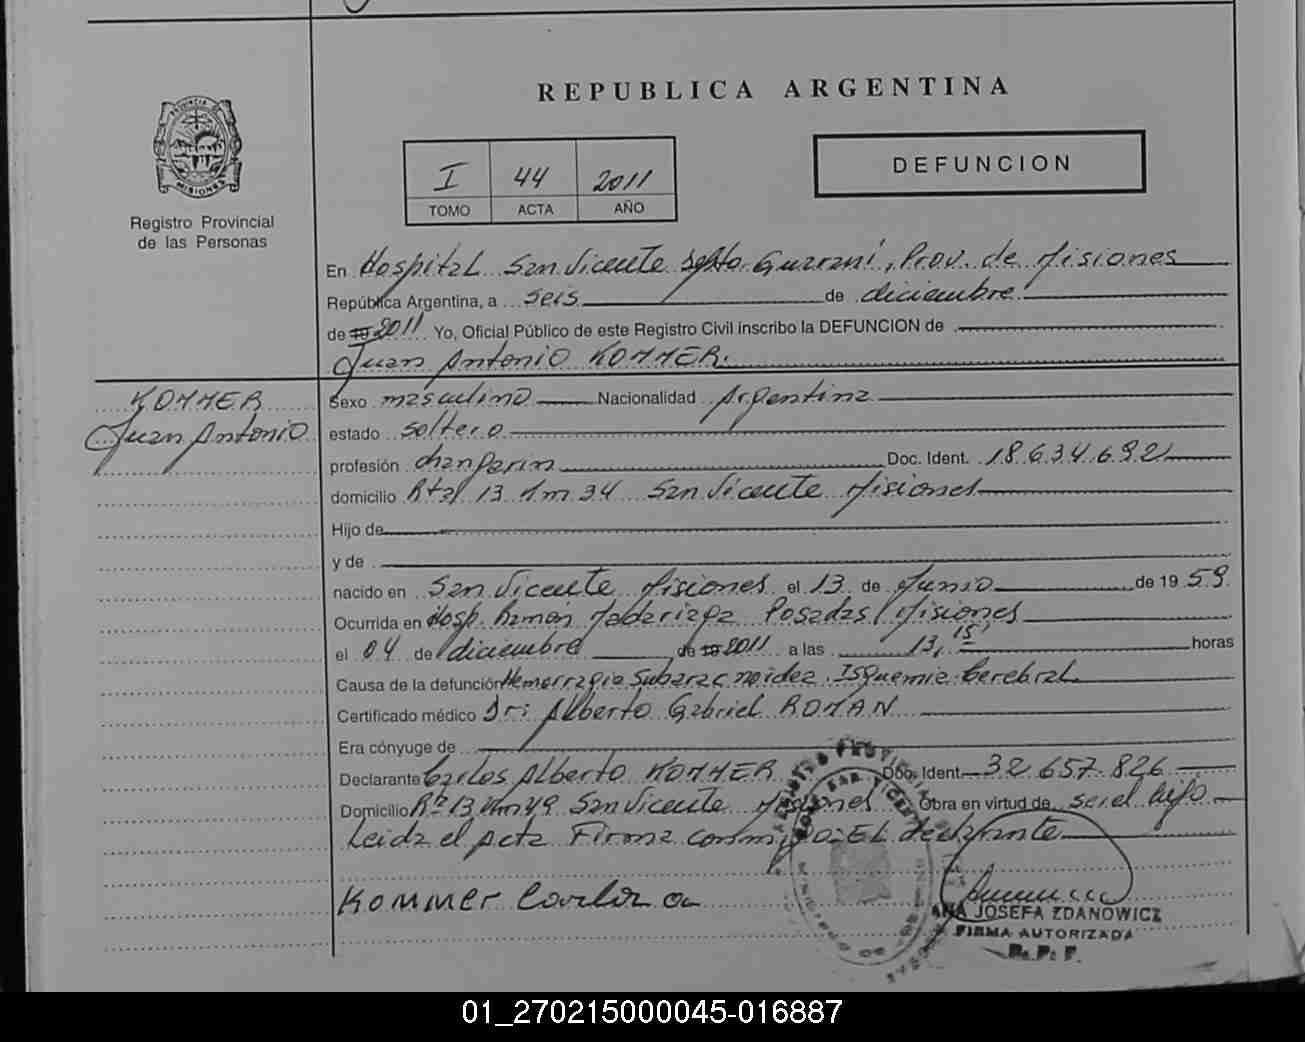 REPUBLICA ARGENTINA
PROVINCIA DE
MISIONES
Registro Provincial
de las Personas
I 44 2011
TOMO ACTA AÑO
DEFUNCION
En Hospital San Vicente Dpto. Guaraní, Prov. de Misiones
República Argentina, a seis de diciembre
de 19 2011 Yo, Oficial Público de este Registro Civil inscribo la DEFUNCION de
Juan Antonio KOMMER.
KOMMER
Juan Antonio
Sexo masculino Nacionalidad Argentina
estado soltero
profesión changarin Doc. Ident. 18.634.692
domicilio Rta 13 Km 34 San Vicente Misiones
Hijo de
y de
nacido en San Vicente Misiones el 13 de Junio de 1959
Ocurrida en Hosp. Ramón Madariaga Posadas Misiones
el 04 de diciembre de 19 2011 a las 13,15 horas
Causa de la defunción Hemorragia Subaracnoidea. Isquemia Cerebral
Certificado médico Dr: Alberto Gabriel ROMAN
Era cónyuge de
Declarante Carlos Alberto KOMMER Doc. Ident. 32.657.826
Domicilio Rta 13 Km 49 San Vicente Misiones Obra en virtud de ser el hijo
Leida el acta Firma conmigo: EL declarante
Kommer Carlos a
ANA JOSEFA ZDANOWICZ
FIRMA AUTORIZADA
R. P. P.
01_270215000045-016887